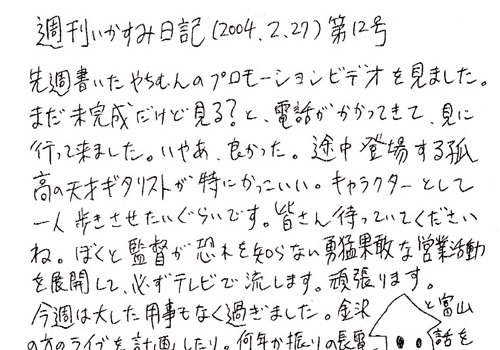 週刊いかすみ日記(2004.2.27)第12号
先週書いたやちむんのプロモーションビデオを見ました。
まだ未完成だけど見る?と、電話がかかってきて、見に
行って来ました。いやあ、良かった。途中登場する孤
高の天才ギタリストが特にかっこいい。キャラクターとして
一人歩きさせたいぐらいです。皆さん待っていてください
ね。ぼくと監督が恐れを知らない勇猛果敢な営業活動
を展開して、必ずテレビで流します。頑張ります。
今週は大した用事もなく過ぎました。金沢と富山
の方のライブを計画したり。何年か振りの長電話を